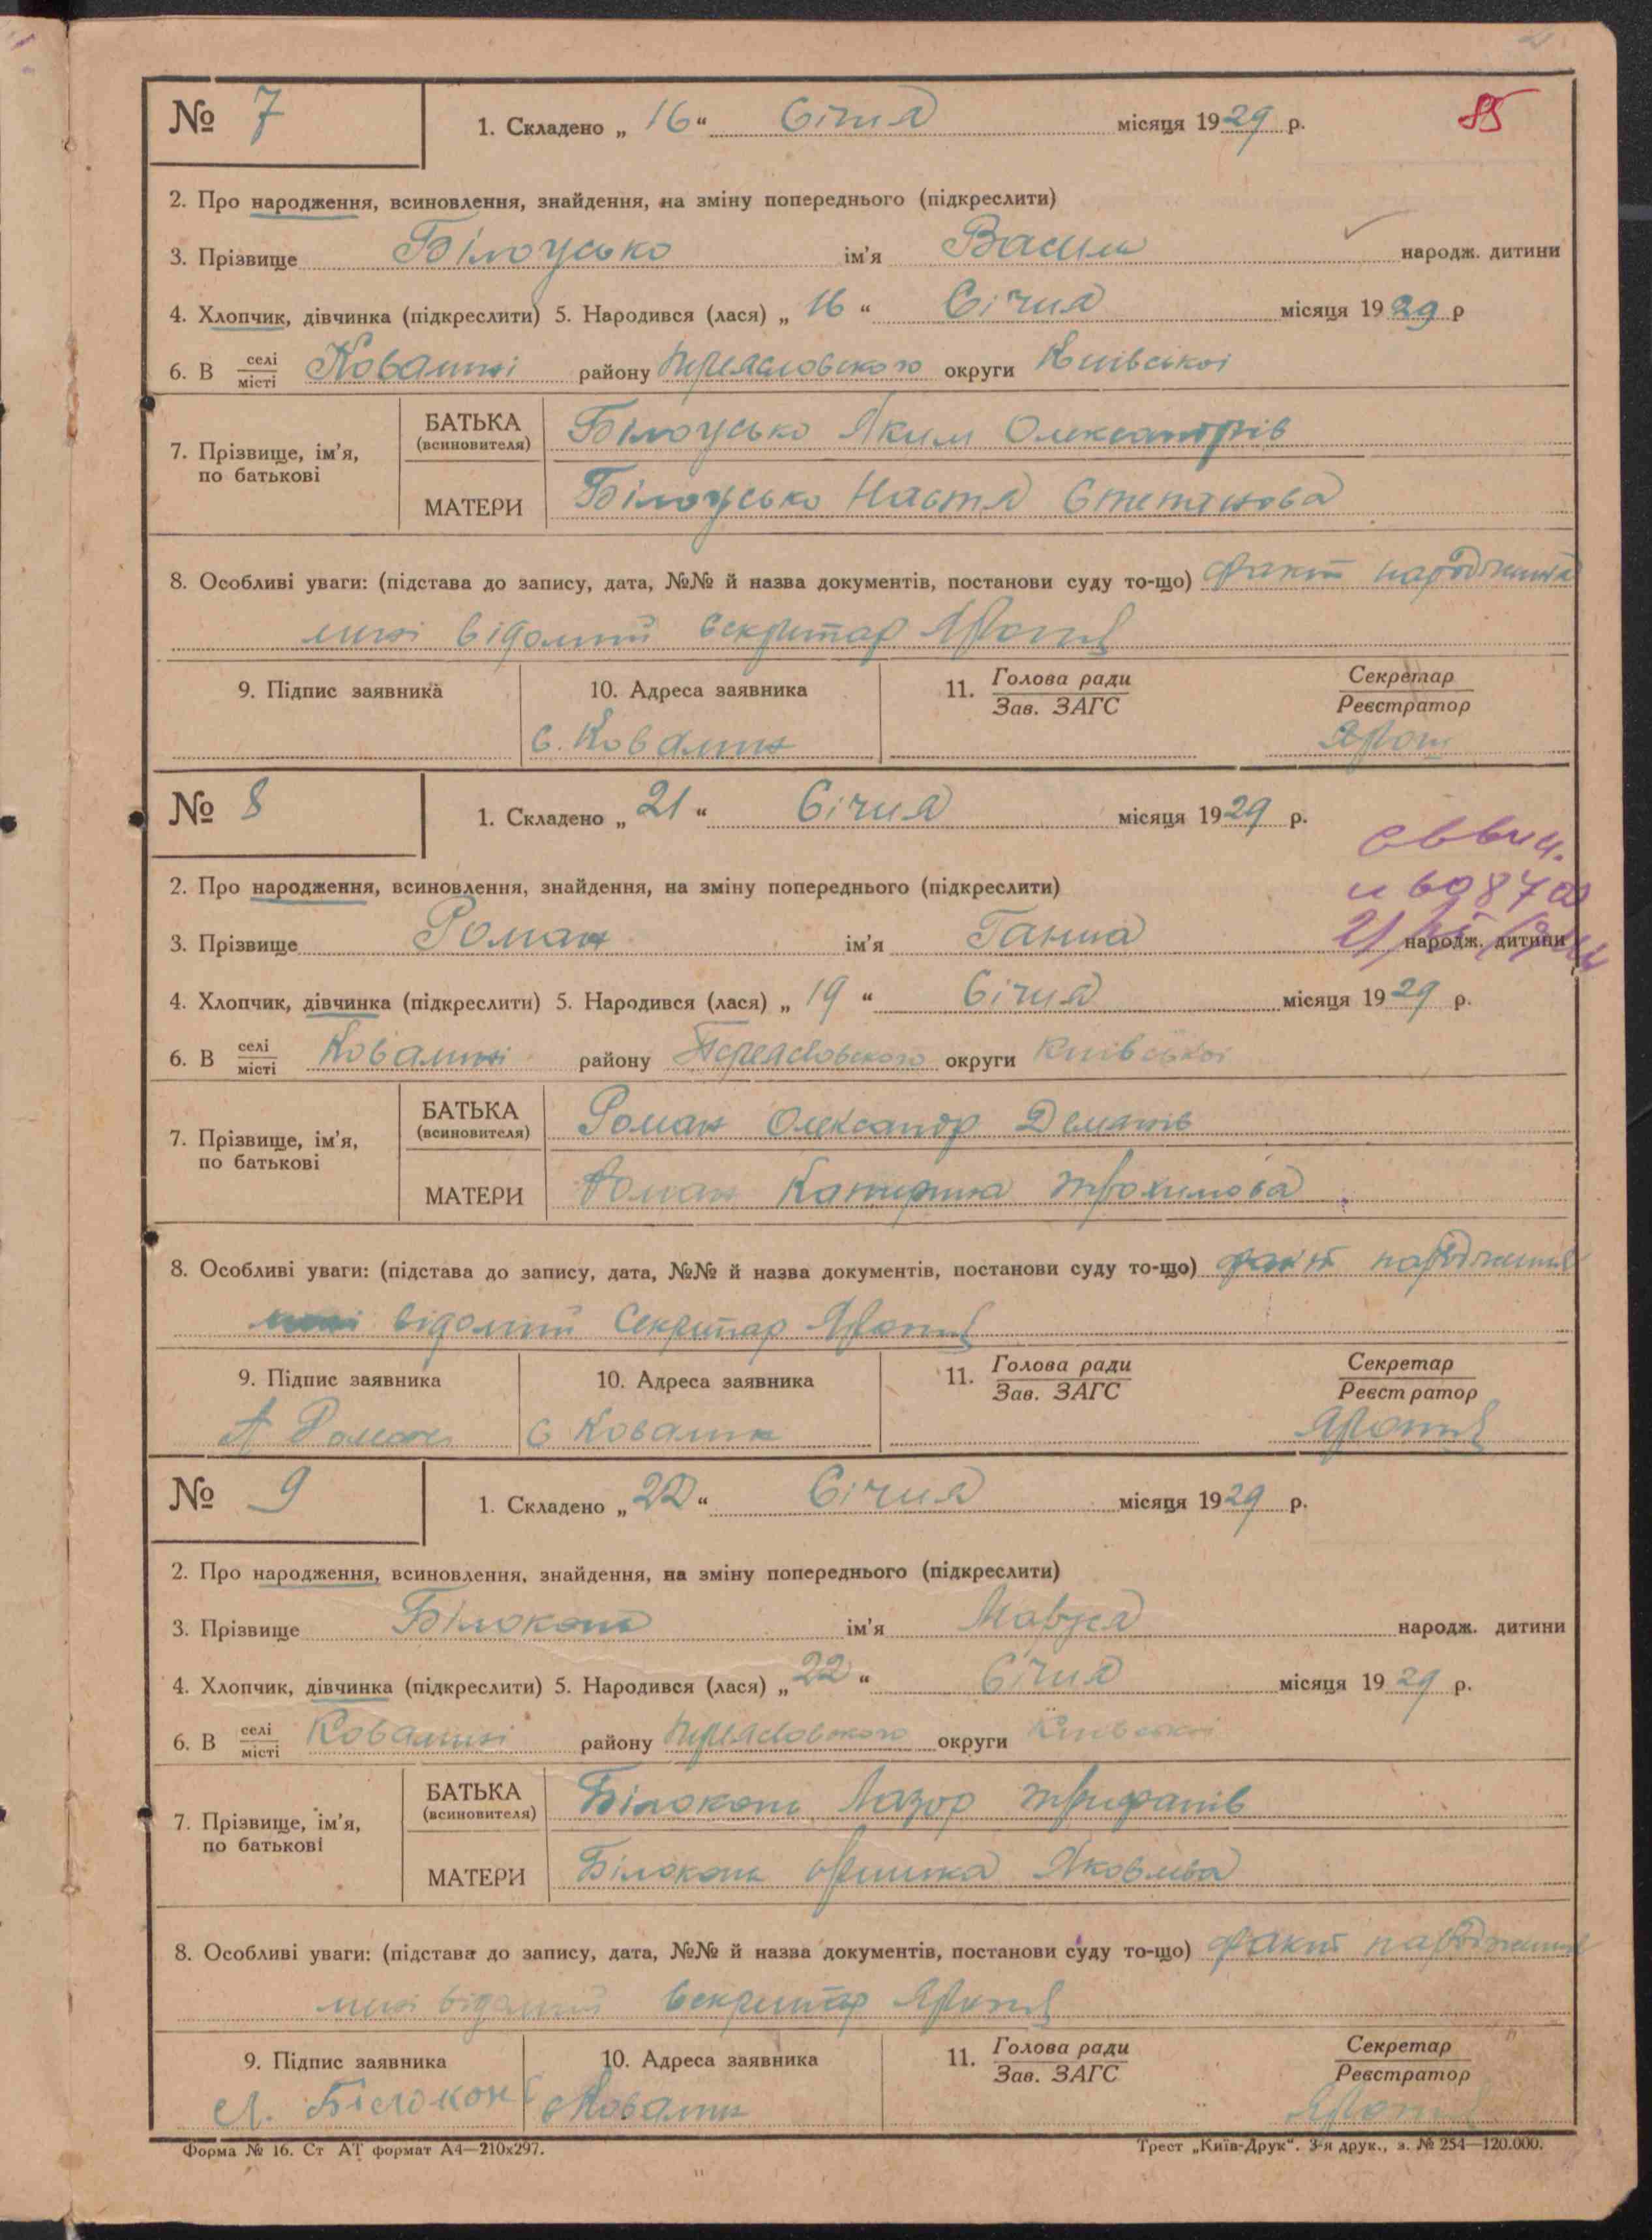 № 7 1. Складено „ 16 “ Січня місяця 1929 р. 85
2. Про народження, всиновлення, знайдення, на зміну попереднього (підкреслити)
3. Прізвище Білоусько ім'я Васил народж. дитини
4. Хлопчик, дівчинка (підкреслити) 5. Народився (лася) „ 16 “ Січня місяця 1929 р
6. В селі місті Ковалині району Переяславського округи Київської
7. Прізвище, ім'я, по батькові
БАТЬКА (всиновителя) Білоусько Яким Олександрів
МАТЕРИ Білоусько Настя Степанова
8. Особливі уваги: (підстава до запису, дата, №№ й назва документів, постанови суду то-що) факт народження
мині відомий Секритар
9. Підпис заявника 10. Адреса заявника 11. Голова ради Зав. ЗАГС Секретар Реєстратор
с. Ковалин
№ 8 1. Складено „ 21 “ Січня місяця 1929 р.
2. Про народження, всиновлення, знайдення, на зміну попереднього (підкреслити)
3. Прізвище Роман ім'я Ганна народж. дитини
4. Хлопчик, дівчинка (підкреслити) 5. Народився (лася) „ 19 “ Січня місяця 1929 р.
6. В селі місті Ковалині району Переясловского округи Київської
7. Прізвище, ім'я, по батькові
БАТЬКА (всиновителя) Роман Олександр Демянів
МАТЕРИ Роман Катирина Трохимова
8. Особливі уваги: (підстава до запису, дата, №№ й назва документів, постанови суду то-що) факт народження
мині відомий Секритар
9. Підпис заявника 10. Адреса заявника 11. Голова ради Зав. ЗАГС Секретар Реєстратор
А Роман с Ковалин
№ 9 1. Складено „ 22 “ Січня місяця 1929 р.
2. Про народження, всиновлення, знайдення, на зміну попереднього (підкреслити)
3. Прізвище Білоконь ім'я Мавря народж. дитини
4. Хлопчик, дівчинка (підкреслити) 5. Народився (лася) „ 22 “ Січня місяця 1929 р.
6. В селі місті Ковалині району Переясловского округи Київської
7. Прізвище, ім'я, по батькові
БАТЬКА (всиновителя) Білоконь Лазор Трифанів
МАТЕРИ Білоконь Оришка Яковлева
8. Особливі уваги: (підстава до запису, дата, №№ й назва документів, постанови суду то-що) факт народження
мині відомий Секритар
9. Підпис заявника 10. Адреса заявника 11. Голова ради Зав. ЗАГС Секретар Реєстратор
Л. Білоконь Ковалин
Форма № 16. Ст АТ формат А4—210х297. Трест „Київ-Друк“. 3-я друк., з. № 254—120.000.